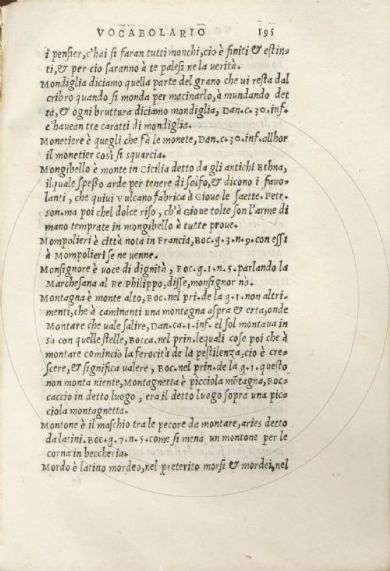 VOCABOLARIO 195
i pensier, c'hai si faran tutti monchi, cio è finiti & estin-
ti, & per cio saranno à te palesi ne la verità.
Mondiglia diciamo quella parte del grano che ui resta dal
cribro quando si monda per macinarlo, à mundando det
ta, & ogni bruttura diciamo mondiglia, Dan.c.30.inf.
c'hauean tre caratti di mondiglia.
Monetiere è quegli che fà le monete, Dan.c.30.inf. allhor
il monetier così si squarcia.
Mongibello è monte in Cicilia detto da gli antichi Ethna,
il quale speßo arde per tenere di solfo, & dicono i fauo-
lanti, che quiui Vulcano fabrica à Gioue le saette. Petr-
son. ma poi chel dolce riso, ch'à Gioue tolte son l'arme di
mano temprate in mongibello à tutte proue.
Mompolieri è città nota in Francia, Boc.g.3.n.9. con essi
à Mompolieri se ne uenne.
Monsignore è uoce di dignità, Boc.g.1.n.5. parlando la
Marchesana al Re Philippo, disse, monsignor nò.
Montagna è monte alto, Boc.nel pri.de la g.1. non altri-
menti, che à caminanti una montagna aspra & erta, onde
Montare che uale salire, Dan.ca.1.inf. el sol montaua in
sù con quelle stelle, Bocca.nel prin. lequali cose poi che à
montare comincio la ferocità de la pestilenza, cio è cre-
scere, & significa ualere, Boc.nel prin.de la g.1. questo
non monta niente, Montagnetta è picciola mōtagna, Boc-
caccio in detto luogo, era il detto luogo sopra una pic-
ciola montagnetta.
Montone è il maschio tra le pecore da montare, aries detto
da latini. Boc.g.7.n.5. come si mena un montone per le
corna in beccheria.
Mordo è latino mordeo, nel preterito morsi & mordei, nel